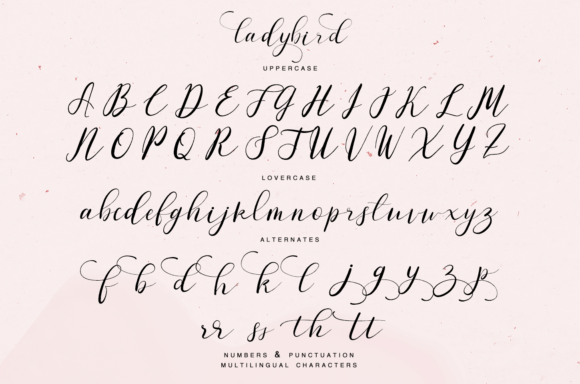 ladybird
UPPERCASE
A B C D E F G H I J K L M
N O P Q R S T U V W X Y Z
LOVERCASE
abcdefghijklmnoprstuvwxyz
ALTERNATES
f b d h k l j g y z p
rr ss th tt
NUMBERS & PUNCTUATION
MULTILINGUAL CHARACTERS